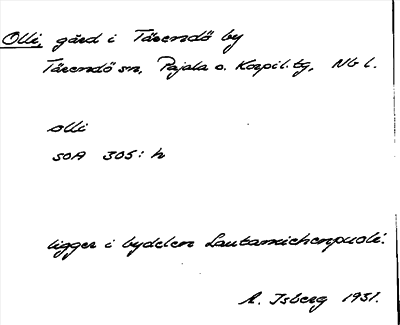 Olli, gård i Tärendö by
Tärendö sn, Pajala o. Korpil. tg, Nb l.
olli
SOA 305: h
ligger i bydelen Lautamiehenpuoli.
A. Isberg 1931.